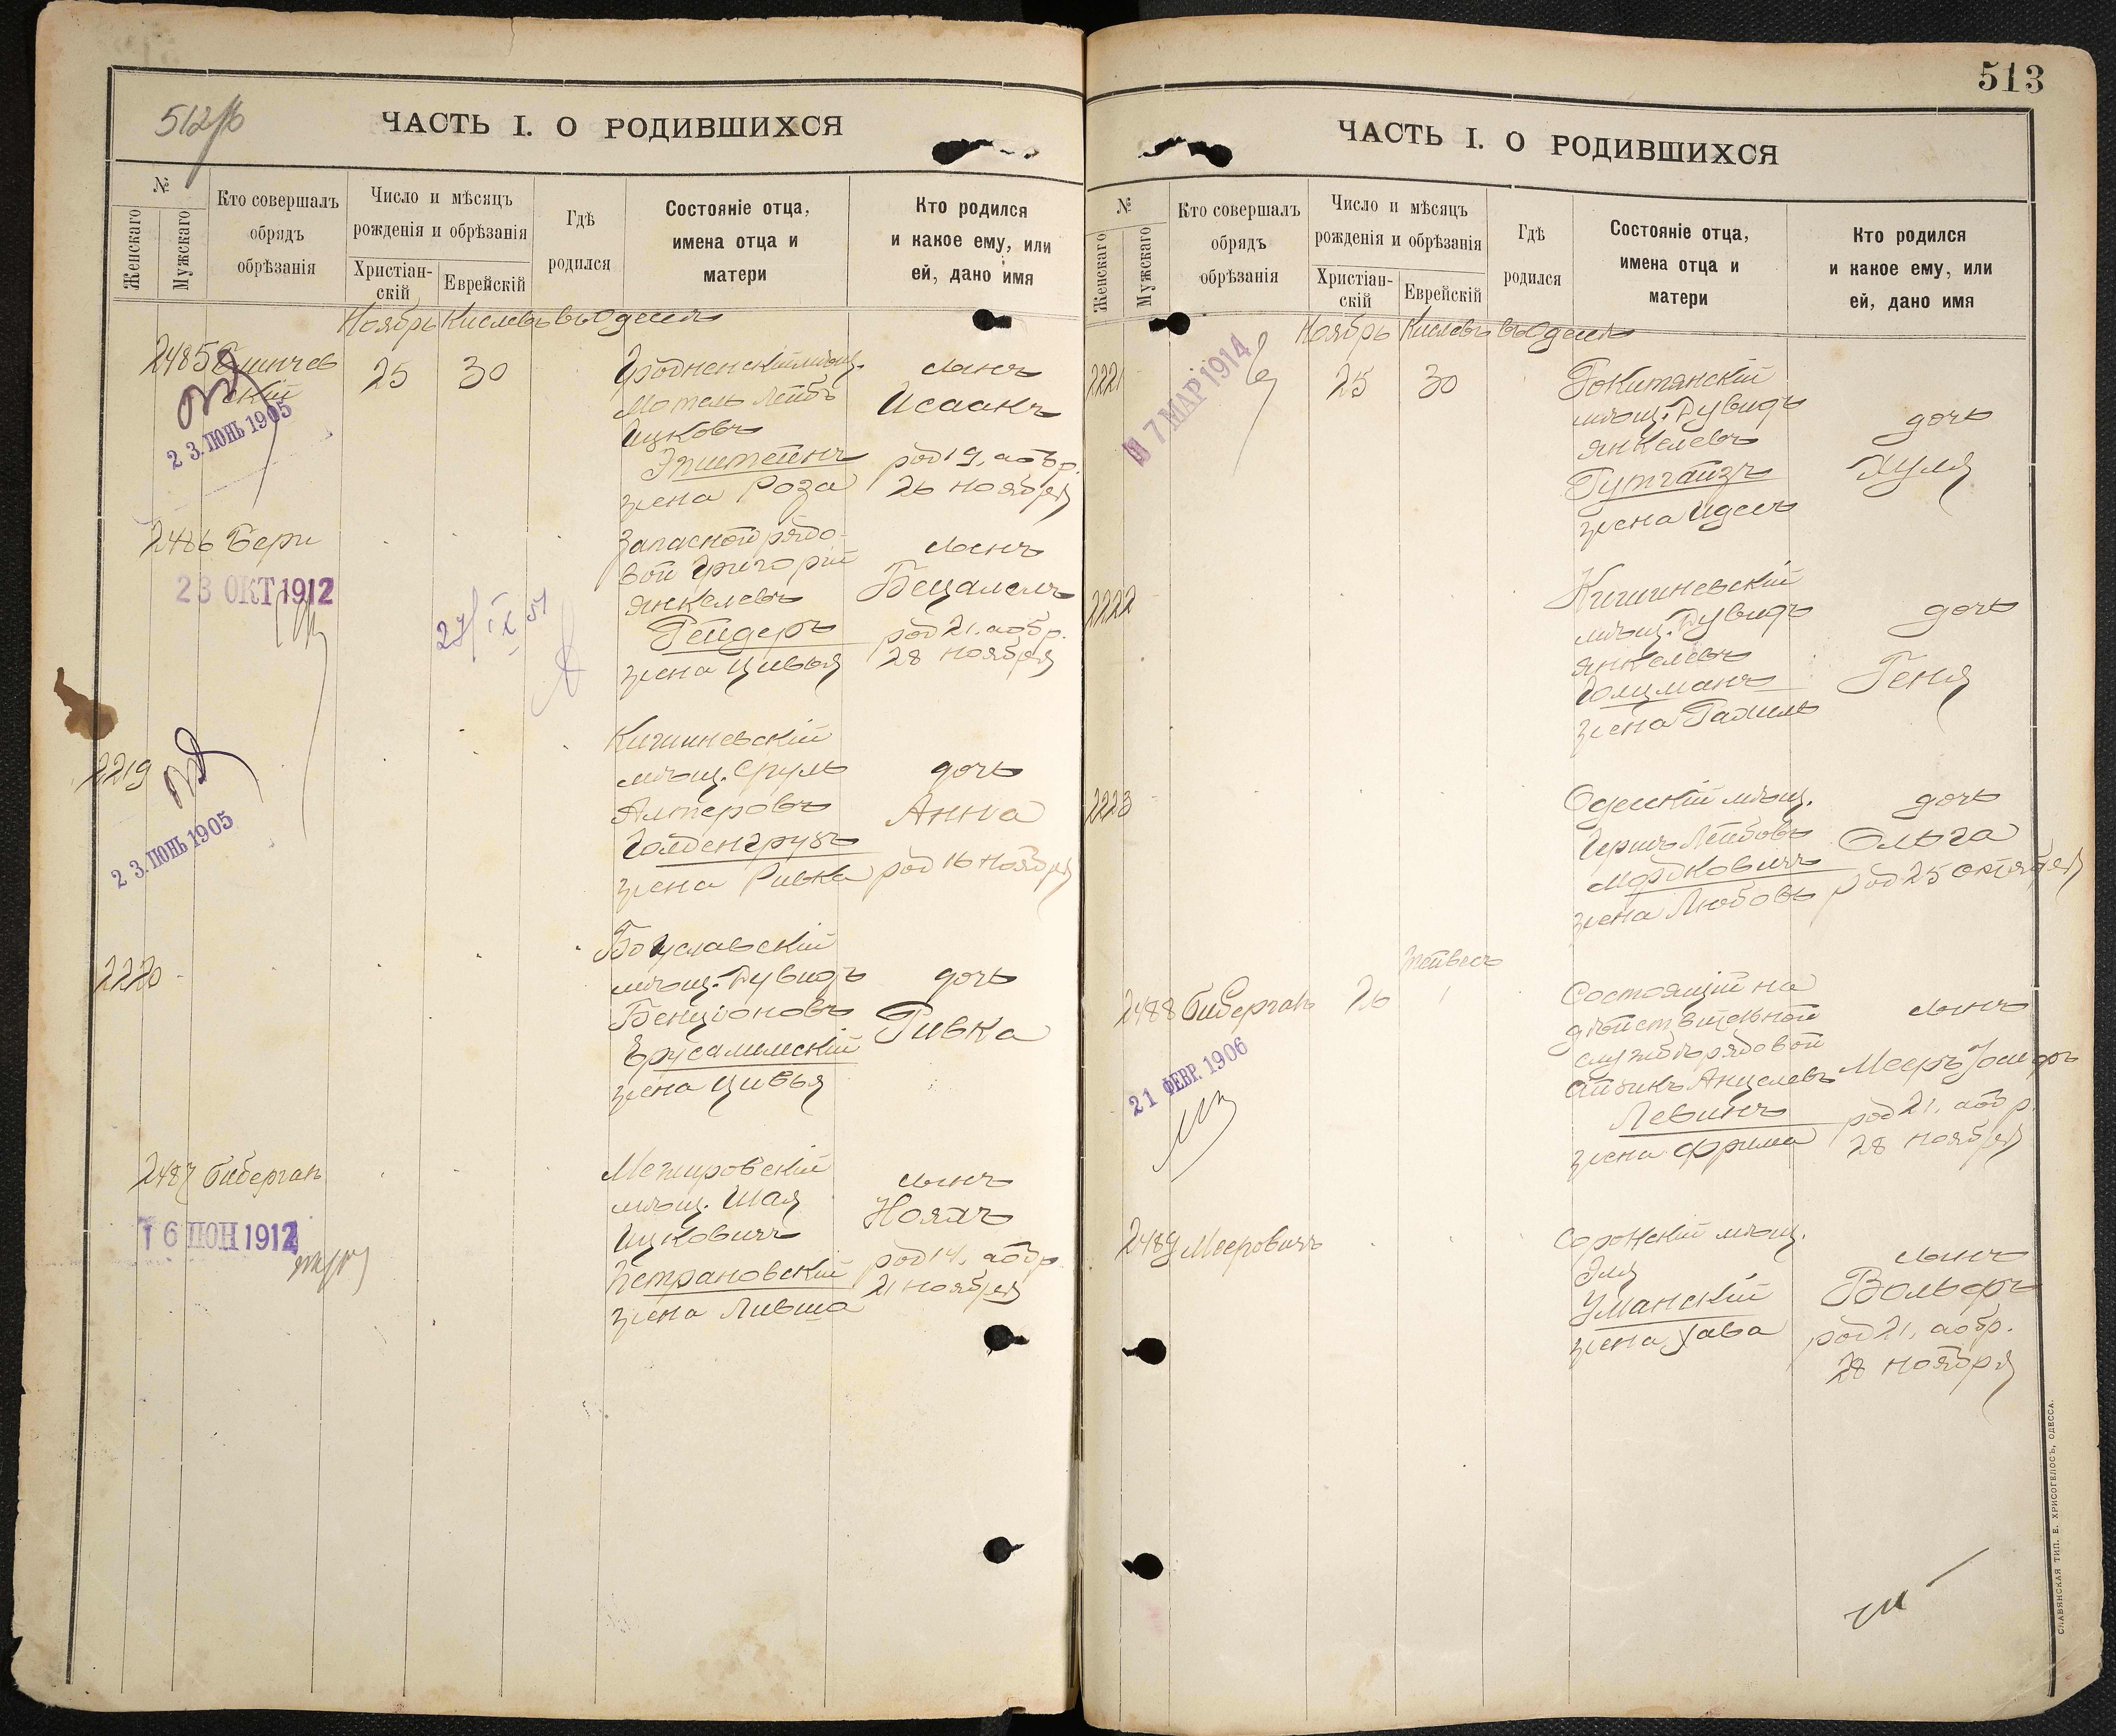 512
ЧАСТЬ I. О РОДИВШИХСЯ
№
Женскаго
Мужскаго
Кто совершалъ
обрядъ
обрѣзанія
Число и мѣсяцъ
рожденія и обрѣзанія
Христіан-
скій
Еврейскій
Гдѣ
родился
Состояніе отца,
имена отца и
матери
Кто родился
и какое ему, или
ей, дано имя
Ноябрь Кислевъ въ Одессѣ
2485
скій
25
30
Гродненскій мѣщ.
Мотель Лейбъ
Ицковъ
Эпштейнъ
жена Роза
сынъ
Исаакъ
род 19, а обр.
26 ноября
23. ІЮНЬ 1905
2486 Бери
Запасной рядо-
вой Григорій
Янкелевъ
Рейдеръ
жена Цивья
сынъ
Бецалелъ
род 21, а обр.
28 ноября
23 ОКТ 1912
27/IX 51
2219
Кишиневскій
мѣщ. Сруль
Алтеровъ
Голденгрубъ
жена Ривка
дочь
Анна
род 16 ноября
23. ІЮНЬ 1905
2220
Богуславскій
мѣщ. Дувидъ
Бенціоновъ
Ерусалимскій
жена Цивья
дочь
Ривка
2487 Биберганъ
Межировскій
мѣщ. Шая
Ицковичъ
Петрановскій
жена Лившa
сынъ
Нояхъ
род 14, а обр.
21 ноября
16 ІЮН 1912
513
ЧАСТЬ I. О РОДИВШИХСЯ
№
Женскаго
Мужскаго
Кто совершалъ
обрядъ
обрѣзанія
Число и мѣсяцъ
рожденія и обрѣзанія
Христіан-
скій
Еврейскій
Гдѣ
родился
Состояніе отца,
имена отца и
матери
Кто родился
и какое ему, или
ей, дано имя
Ноябрь Кислевъ въ Одессѣ
2221
25
30
Рокитянскій
мѣщ. Дувидъ
Янкелевъ
Гутгайзъ
жена Идесъ
дочь
Хуля
7 МАР 1914
2222
Кишиневскій
мѣщ. Дувидъ
Янкелевъ
Голцманъ
жена Рахиль
дочь
Геня
2223
Одесскій мѣщ.
Гершъ Лейбовъ
Мордковичъ
жена Любовь
дочь
Ольга
род 25 октября
Тейвесъ
2488 Биберганъ
26
1
Состоящій на
дѣйствительной
службѣ рядовой
Айзикъ Анцелевъ
Левинъ
жена Фрима
сынъ
Мееръ
род 21, а обр.
28 ноября
21 ФЕВР. 1906
2489 Мееровичъ
Сорокскій мѣщ.
Эля
Уманскій
жена Хава
сынъ
Вольфъ
род 21, а обр.
28 ноября
СЛАВЯНСКАЯ ТИП. Е. ХРИСОГЕЛОСЪ, ОДЕССА.